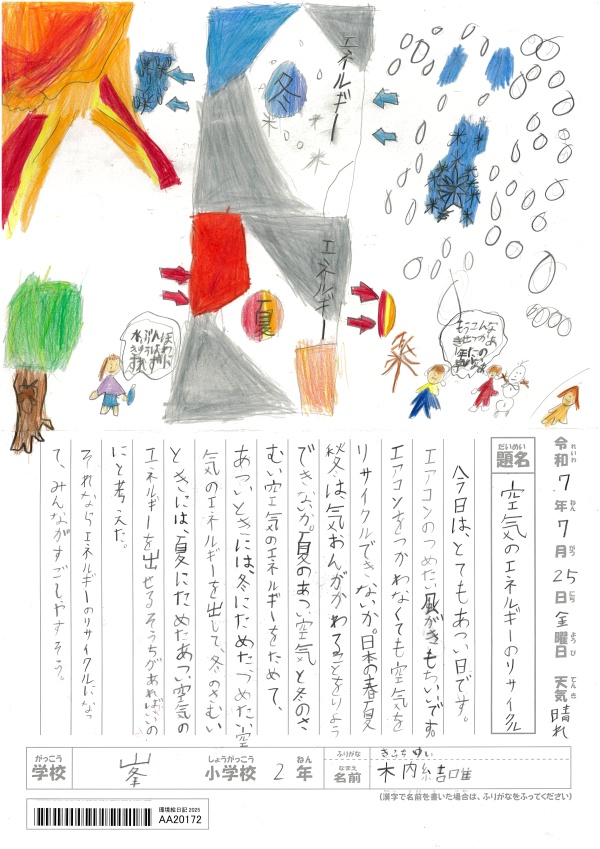 エネルギー
冬
エネルギー
夏
令和7年7月25日金曜日 天気 晴れ
れいわ ねん がつ にち ようび てんき
だいめい
題名 空気のエネルギーのリサイクル
今日は、とてもあつい日です。
エアコンのつめたい風がきもちいいです。
エアコンをつかわなくても空気を
リサイクルできないか。日本の春夏
秋冬は気おんがかわることをりよう
できないか。夏のあつい空気と冬のさ
むい空気のエネルギーをためて、
あついときには、冬にためたつめたい空
気のエネルギーを出して、冬のさむい
ときには、夏にためたあつい空気の
エネルギーを出せるそうちがあればいいの
にと考えた。
それならエネルギーのリサイクルになっ
て、みんながすごしやすそう。
がっこう しょうがっこう ねん
学校 峯 小学校 2年
ふりがな きうち ゆい
なまえ
名前 木内結唯
(漢字で名前を書いた場合は、ふりがなをふってください)
環境絵日記 2025
AA20172